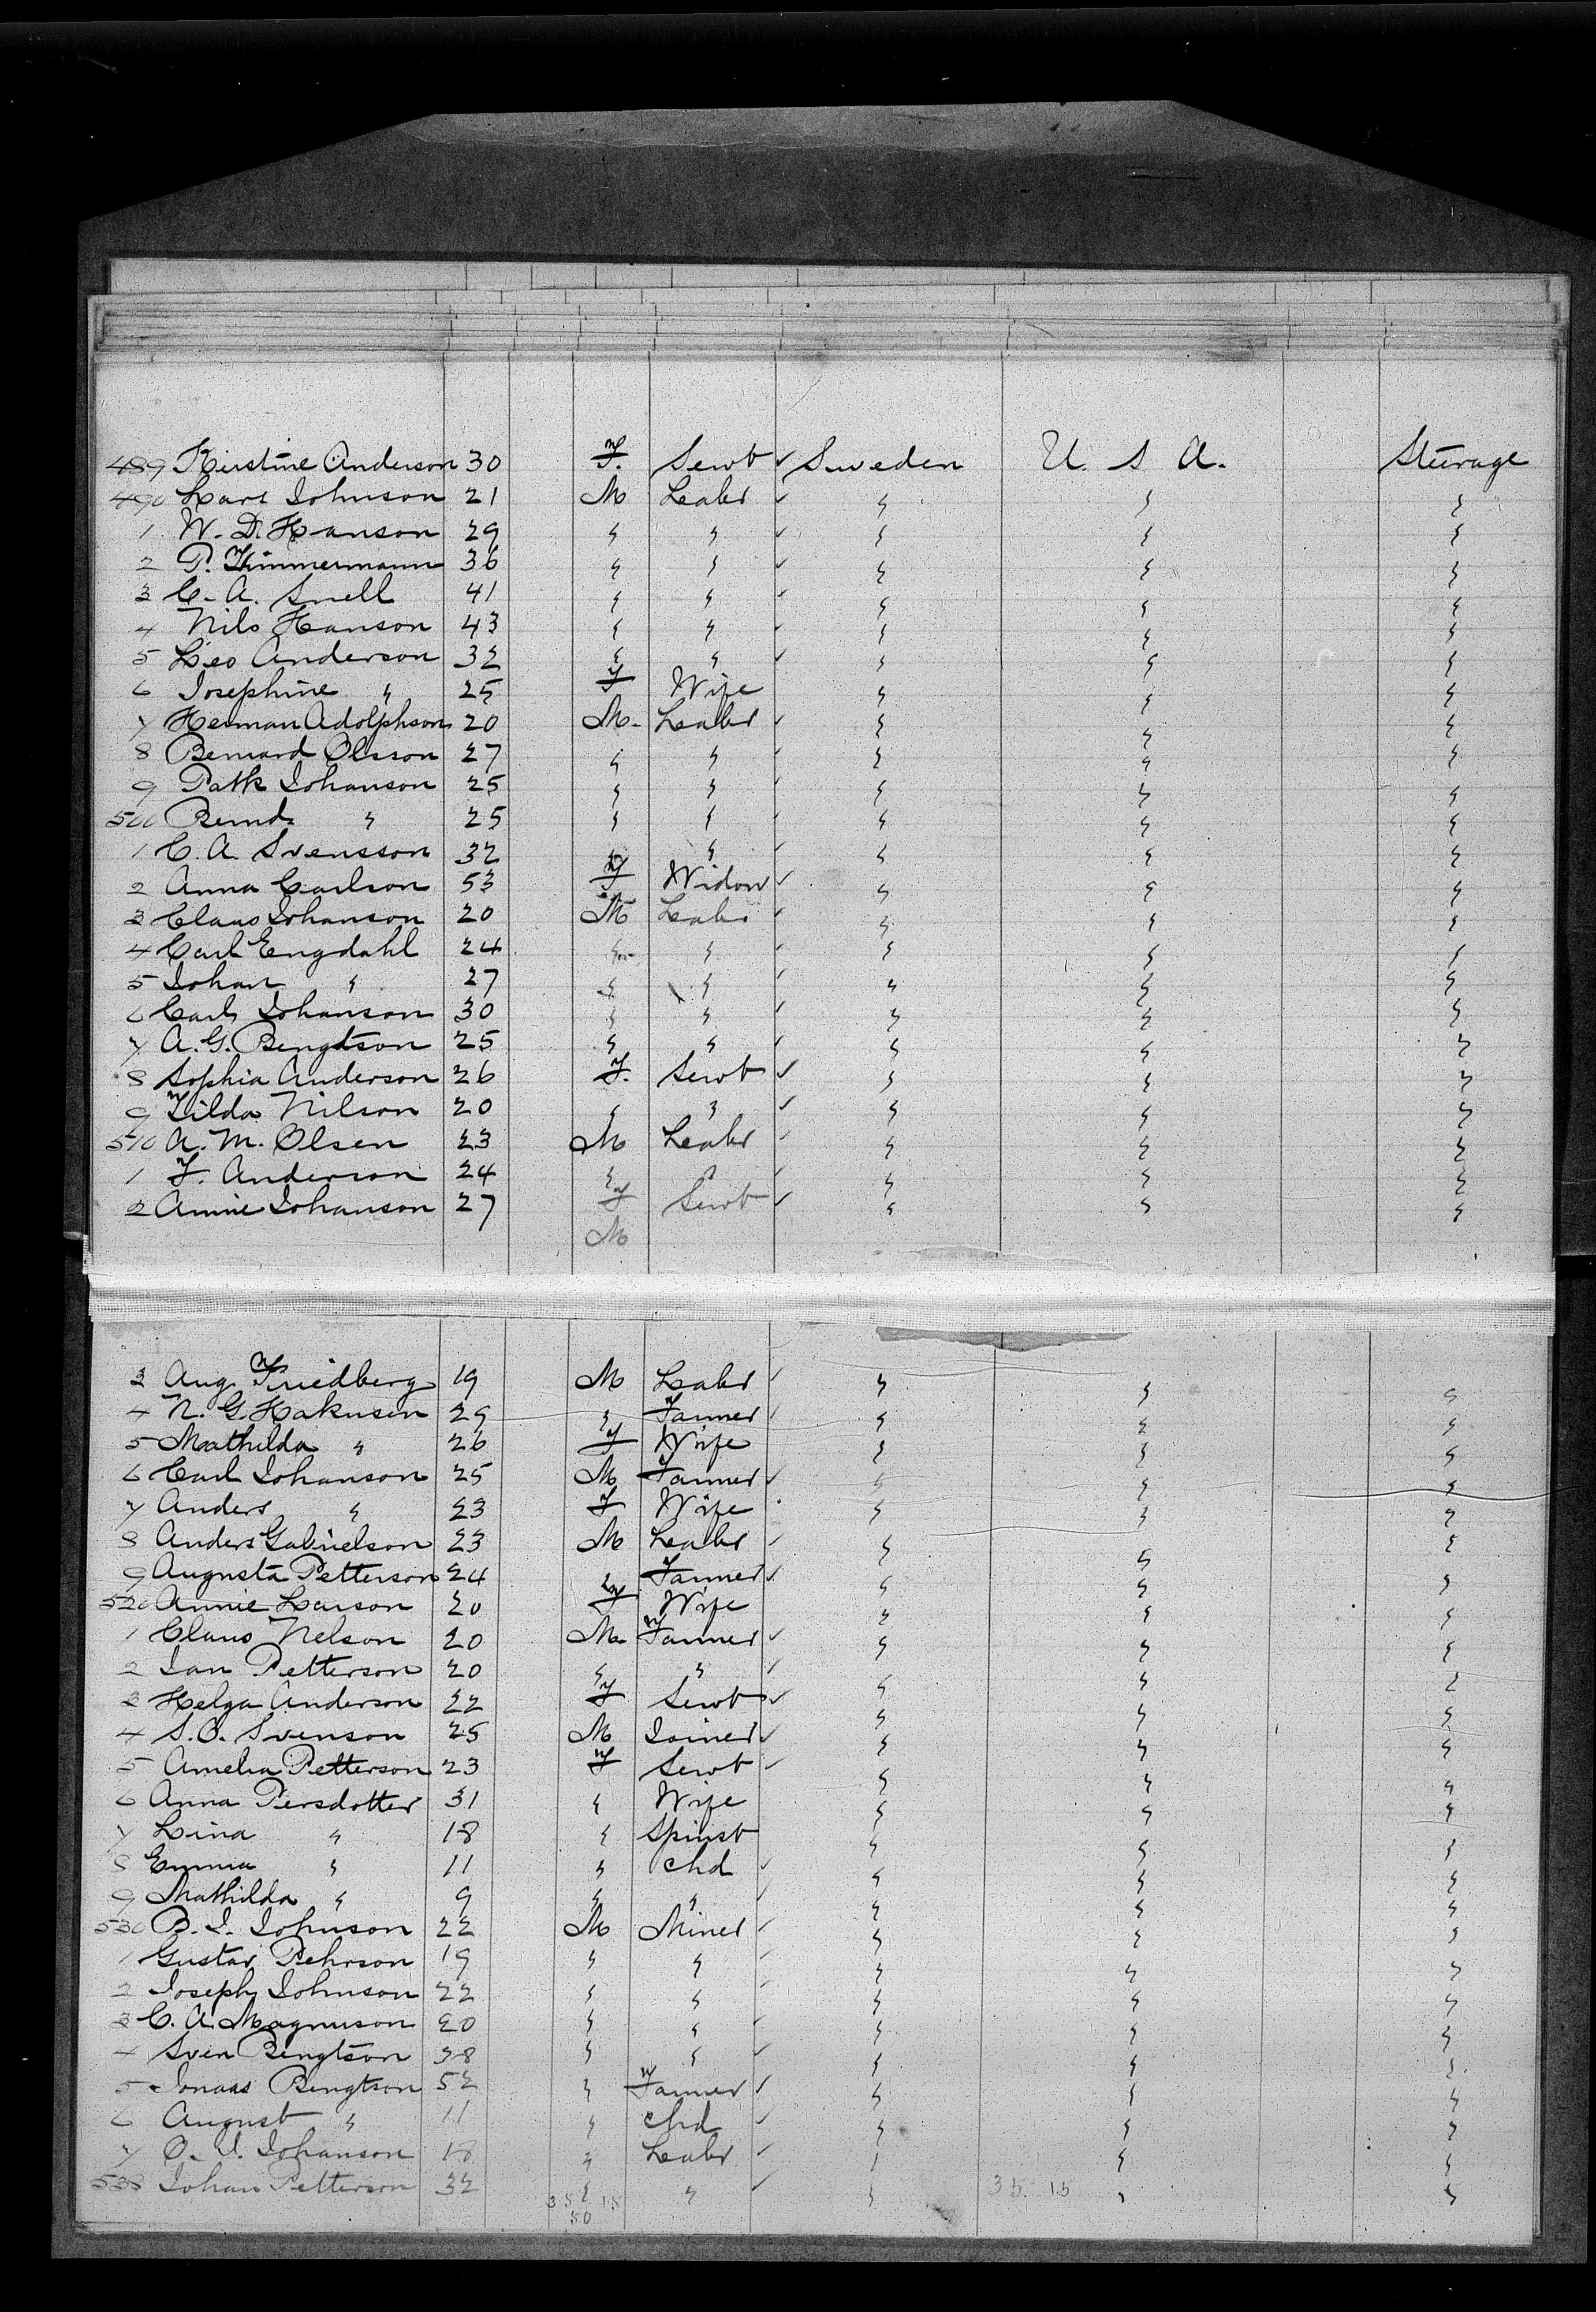 489 Kirstine Anderson 30 F. Servt ✓ Sweden U. S. A. Steerage
490 Lars Johnson 21 M Labr ✓ " " "
1 W. D. Hanson 29 " " ✓ " " "
2 P. Timmermann 36 " " ✓ " " "
3 C. A. Snell 41 " " ✓ " " "
4 Nils Hanson 43 " " ✓ " " "
5 Leo Anderson 32 " " ✓ " " "
6 Josephine " 25 F Wife " " "
7 Herman Adolphson 20 M. Labr ✓ " " "
8 Bernard Olsson 27 " " ✓ " " "
9 Patk Johanson 25 " " ✓ " " "
500 Bernd. " 25 " " ✓ " " "
1 C. A. Svensson 32 " " ✓ " " "
2 Anna Carlson 53 F Widow ✓ " " "
3 Claus Johanson 20 M Labr ✓ " " "
4 Carl Engdahl 24 " " ✓ " " "
5 Johan " 27 " " ✓ " " "
6 Carl Johanson 30 " " ✓ " " "
7 A. G. Bengtson 25 " " ✓ " " "
8 Sophia Anderson 26 F. Servt ✓ " " "
9 Tilda Nilson 20 " " ✓ " " "
510 A. M. Olsen 23 M Labr ✓ " " "
1 F. Anderson 24 " " ✓ " " "
2 Annie Johanson 27 F Servt ✓ " " "
M
3 Aug. Friedberg 19 M Labr ✓ " " "
4 N. G. Hakusen 29 " Farmer ✓ " " "
5 Mathilda " 26 F Wife " " "
6 Carl Johanson 25 M Farmer ✓ " " "
7 Anders " 23 F Wife " " "
8 Anders Gabrielson 23 M Labr ✓ " " "
9 Augusta Petterson 24 " Farmer ✓ " " "
520 Annie Larson 20 F Wife " " "
1 Claus Nelson 20 M. Farmer ✓ " " "
2 Jan Petterson 20 " " ✓ " " "
3 Helga Anderson 22 F Servt ✓ " " "
4 S. O. Svenson 25 M Joiner ✓ " " "
5 Amelia Petterson 23 F Servt ✓ " " "
6 Anna Persdotter 31 " Wife " " "
7 Lina " 18 " Spinst " " "
8 Emma " 11 " Chd ✓ " " "
9 Mathilda " 9 " " ✓ " " "
530 B. J. Johnson 22 M Miner ✓ " " "
1 Gustav Pehrson 19 " " ✓ " " "
2 Joseph Johnson 22 " " ✓ " " "
3 C. A. Magnuson 20 " " ✓ " " "
4 Sven Bengtson 38 " " ✓ " " "
5 Jonaas Bengtson 52 " Farmer ✓ " " "
6 August " 11 " Chd ✓ " " "
7 O. J. Johanson 18 " Labr ✓ " " "
538 Johan Petterson 32 " " ✓ " " "
35 15 35. 15
50